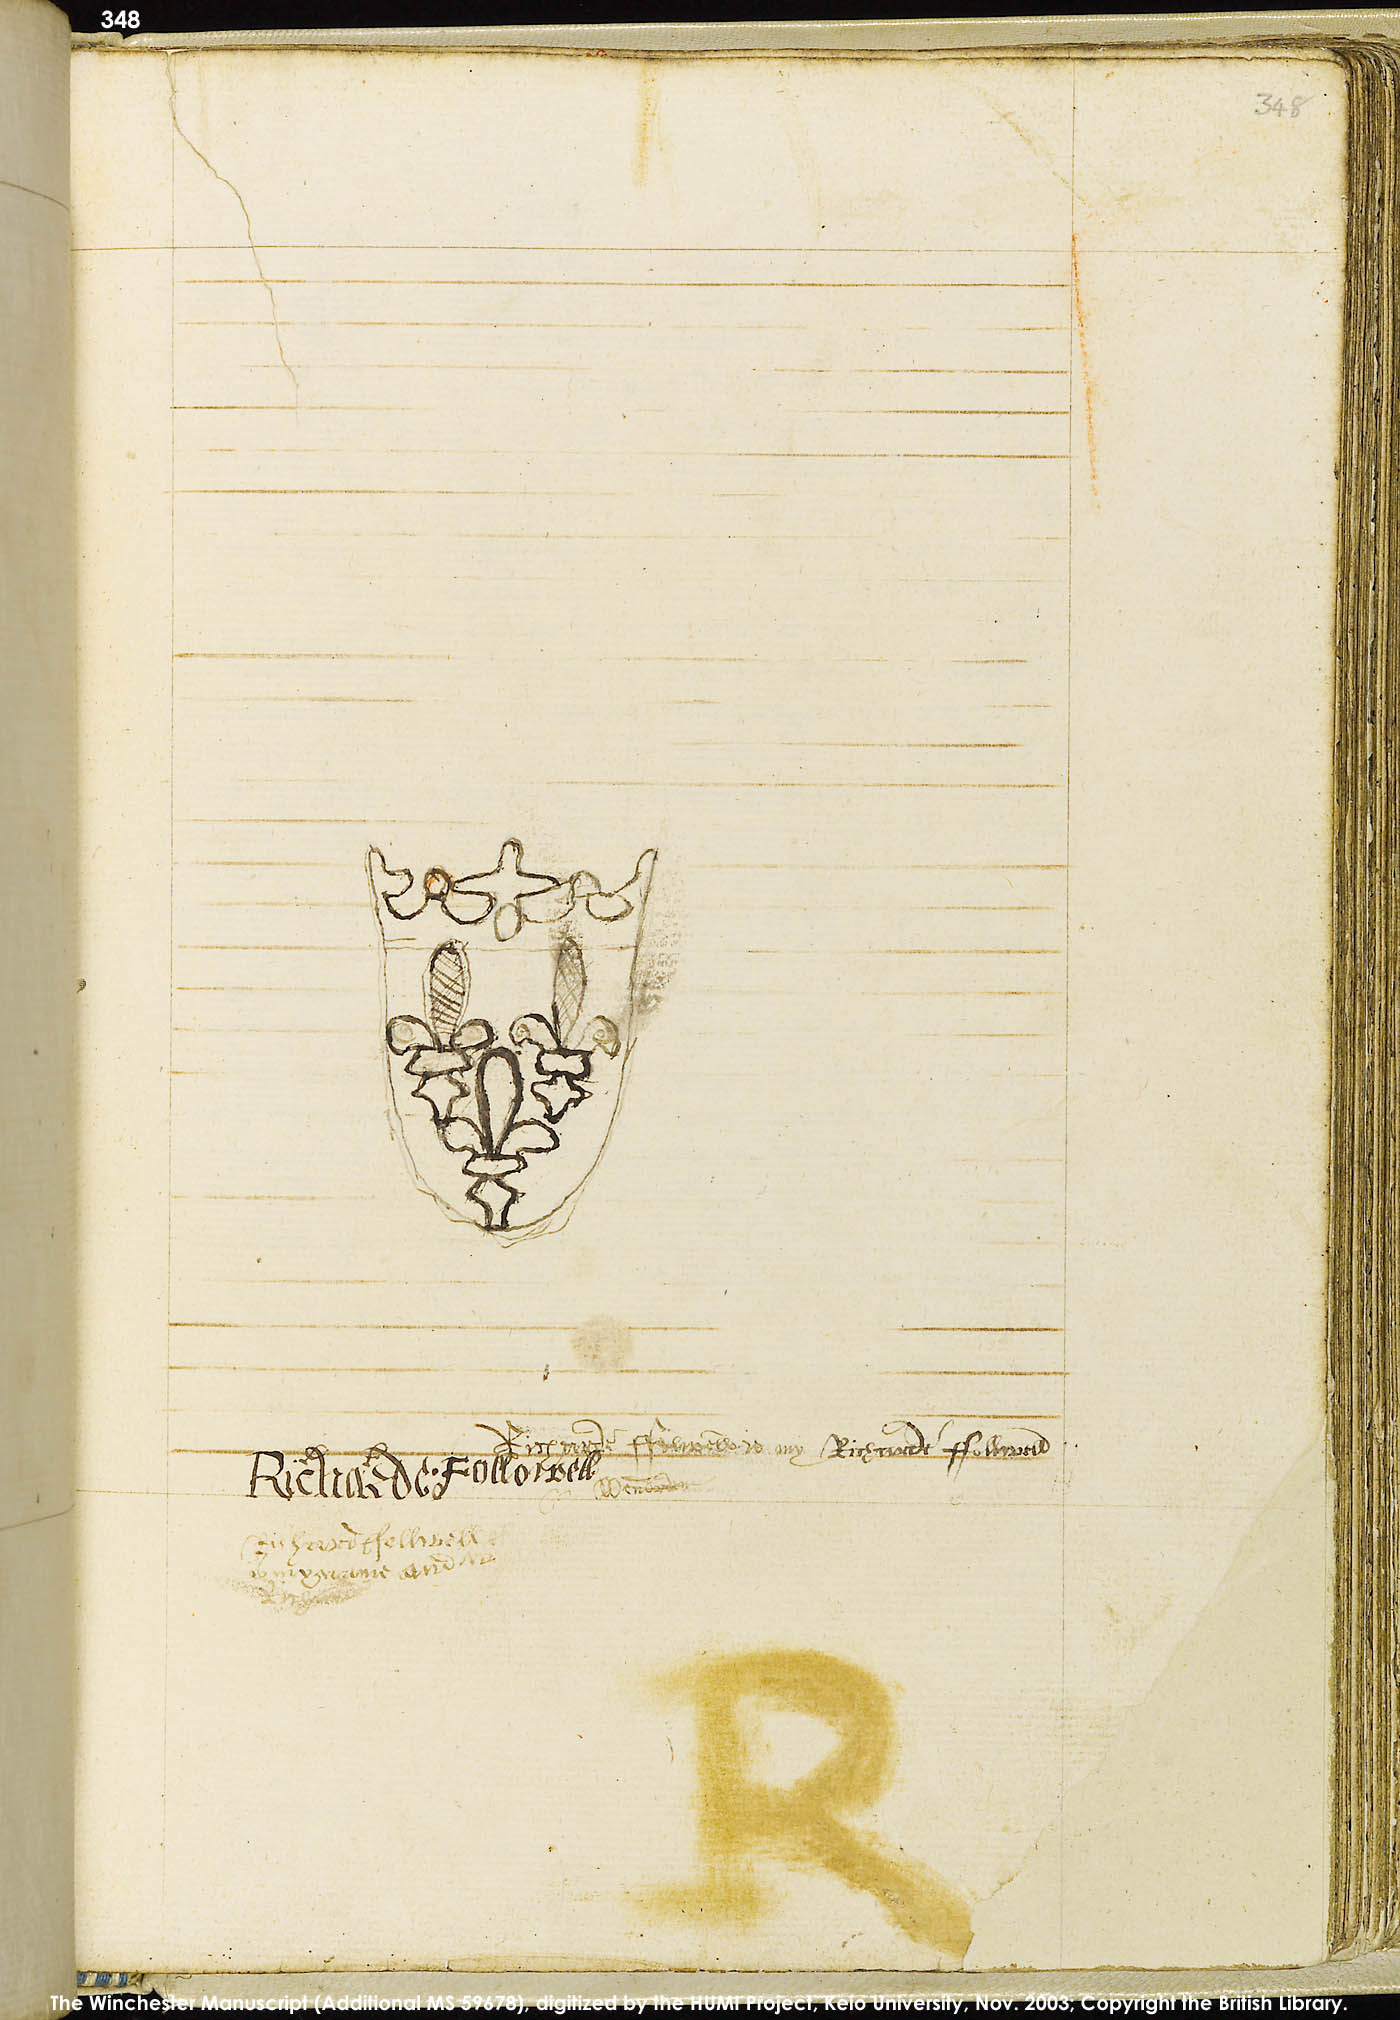 348
348
Richarde ffollwell is my Richarde ffollwell
Richarde Followell
Richard ffollwell
is my name and
R
The Winchester Manuscript (Additional MS 59678), digitized by the HUMI Project, Keio University, Nov. 2003, Copyright The British Library.